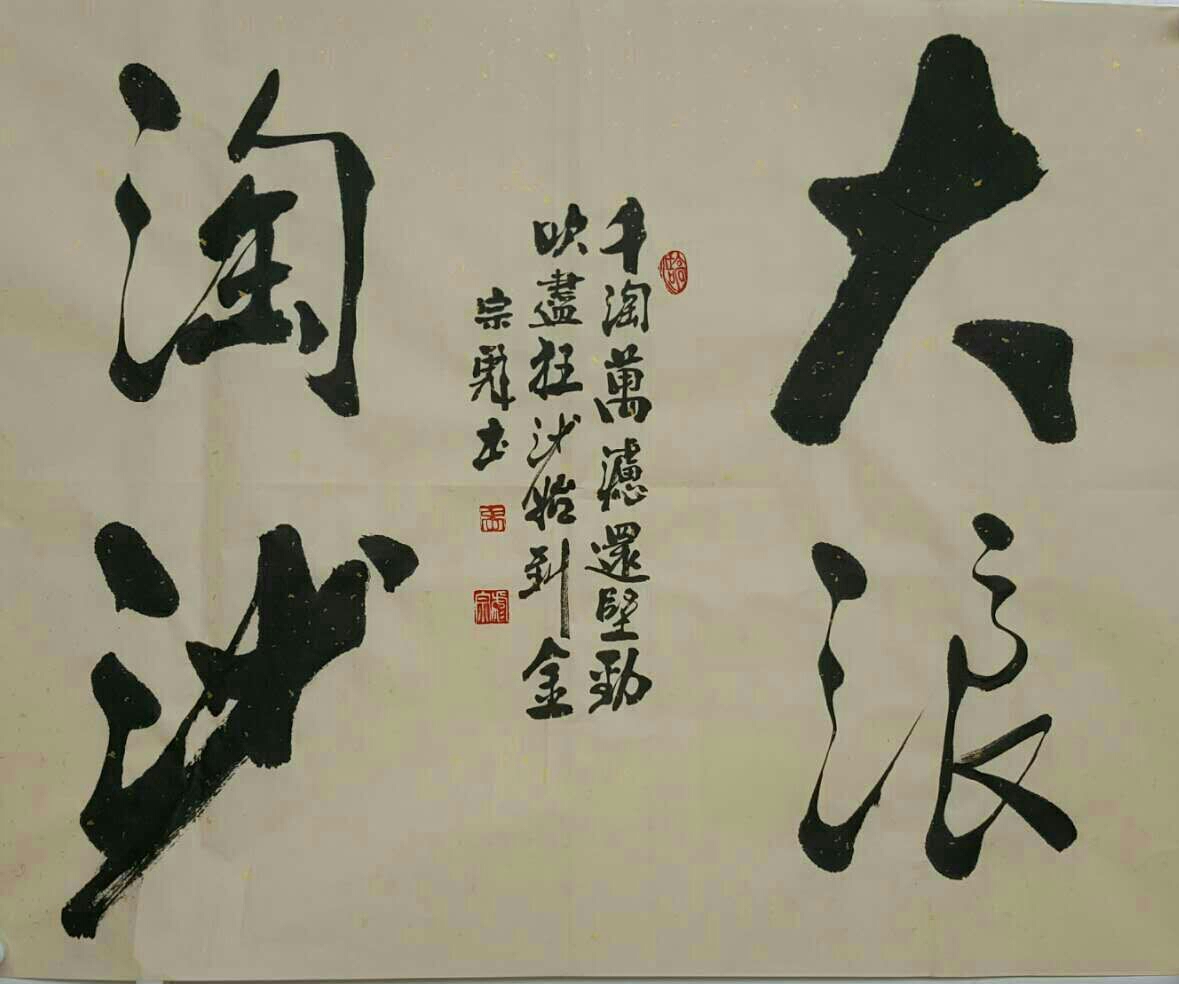 大浪
淘沙
千淘萬濾還堅勁
吹盡狂沙始到金
宗 书